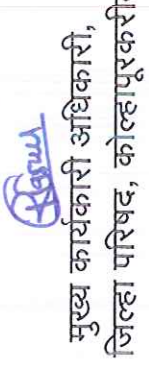 मुख्य कार्यकारी अधिकारी,
जिल्हा परिषद, कोल्हापूरकरीता